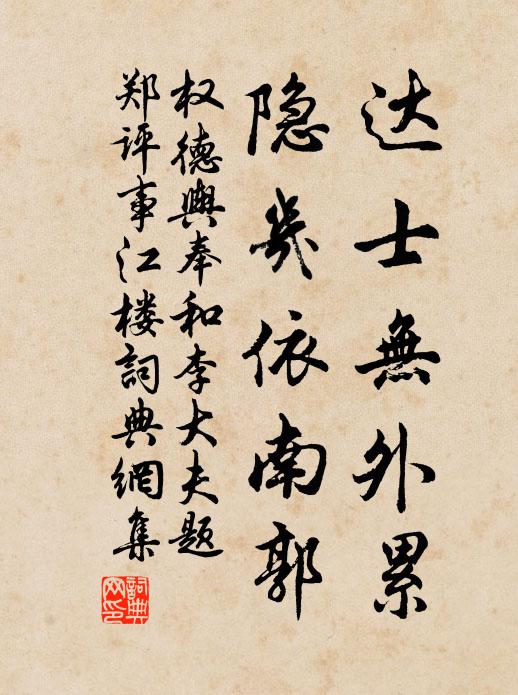 达士無外累
隐幾依南郭
权德舆奉和李大夫题
郑评事江楼詞典網集
詞典
网印